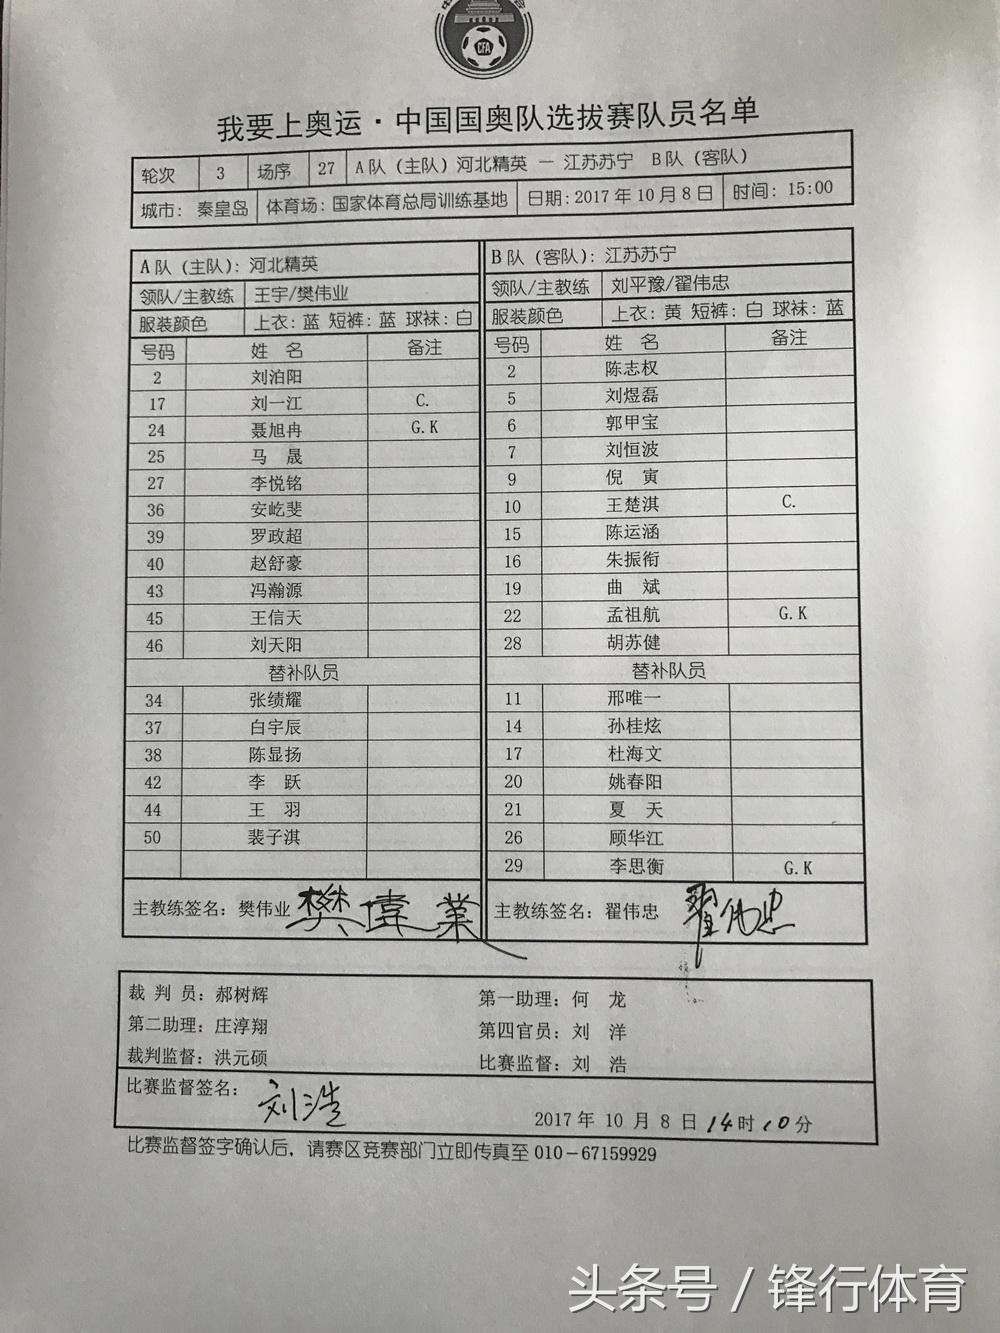 CFA
我要上奥运·中国国奥队选拔赛队员名单
轮次 3 场序 27 A队（主队）河北精英 — 江苏苏宁 B队（客队）
城市：秦皇岛 体育场：国家体育总局训练基地 日期：2017年10月8日 时间：15:00
A队（主队）：河北精英 B队（客队）：江苏苏宁
领队/主教练 王宇/樊伟业 领队/主教练 刘平豫/翟伟忠
服装颜色 上衣：蓝 短裤：蓝 球袜：白 服装颜色 上衣：黄 短裤：白 球袜：蓝
号码 姓 名 备注 号码 姓 名 备注
2 刘泊阳 2 陈志权
17 刘一江 C. 5 刘煜磊
24 聂旭冉 G.K 6 郭甲宝
25 马 晟 7 刘恒波
27 李悦铭 9 倪 寅
36 安屹斐 10 王楚淇 C.
39 罗政超 15 陈运涵
40 赵舒豪 16 朱振衔
43 冯瀚源 19 曲 斌
45 王信天 22 孟祖航 G.K
46 刘天阳 28 胡苏健
替补队员 替补队员
34 张绩耀 11 邢唯一
37 白宇辰 14 孙桂炫
38 陈显扬 17 杜海文
42 李 跃 20 姚春阳
44 王 羽 21 夏 天
50 裴子淇 26 顾华江
29 李思衡 G.K
主教练签名：樊伟业 樊偉業 主教练签名：翟伟忠 翟伟忠
裁 判 员：郝树辉 第一助理：何 龙
第二助理：庄淳翔 第四官员：刘 洋
裁判监督：洪元硕 比赛监督：刘 浩
比赛监督签名：刘浩 2017年 10 月 8 日 14时10分
比赛监督签字确认后，请赛区竞赛部门立即传真至 010－67159929
头条号 / 锋行体育